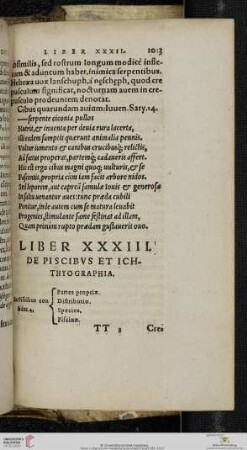 LIBER XXXII. 1013
similis, sed rostrum longum modicè infle-
xum & aduncum haber, inimica serpentibus.
Hebræa vox Ianschuph, à neschgph, quod cre
pusculum significat, nocturnam in crepusculo prodeuntem denotat.
Cibus quarundam auium Iuuen. Saty. 14.
—serpente ciconia pullos
Nutrit, & inuenta per deuia rura lacerta,
Illi eadem sumptis quærunt animalia pennis.
Vultur iumento & canibus crucibusq; relictis,
Ad fœtus properat, partemq; cadaueris affert.
Hic est ergo cibus magni quoq; vulturis, & se
Pascentis, propria cùm iam facit arbore nidos.
Sed leporem, aut capreã famulæ Iouis & generosæ
In saltu venantur aues: tunc præda cubili
Ponitur, inde autem cum se matura leuabit
Progenies, stimulante fame festinat ad illam,
Quam primùm rupto prædam gustauerit ouo.
LIBER XXXIII.
DE PISCIBVS ET ICH-
THYOGRAPHIA.
De Piscibus con
sidera,
Partes propriæ.
Distributio.
Species.
Piscinæ.
TT 3